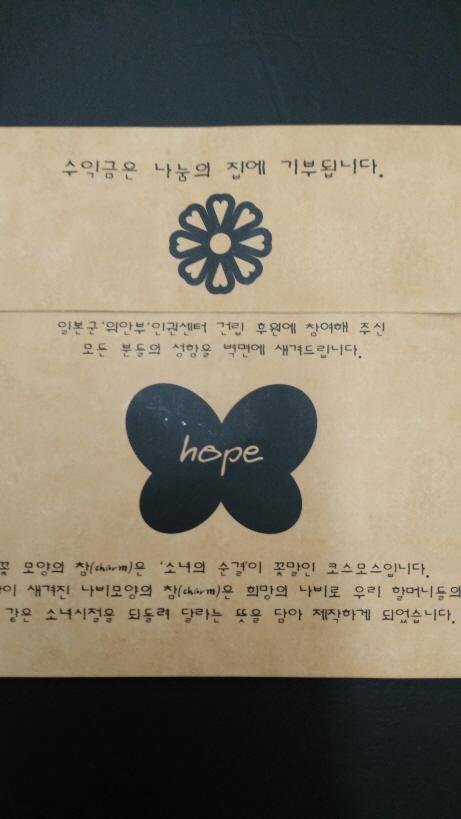 수익금은 나눔의 집에 기부됩니다.
일본군'위안부'인권센터 건립 후원에 참여해 주신
모든 분들의 성함을 벽면에 새겨드립니다.
hope
꽃 모양의 참(charm)은 '소녀의 순결'이 꽃말인 코스모스입니다.
새겨진 나비모양의 참(charm)은 희망의 나비로 우리 할머니들의
같은 소녀시절을 되돌려 달라는 뜻을 담아 제작하게 되었습니다.